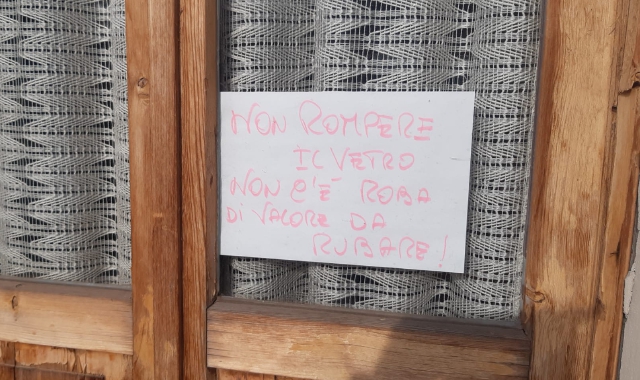 NON ROMPERE
IL VETRO
NON C'È ROBA
DI VALORE DA
RUBARE!